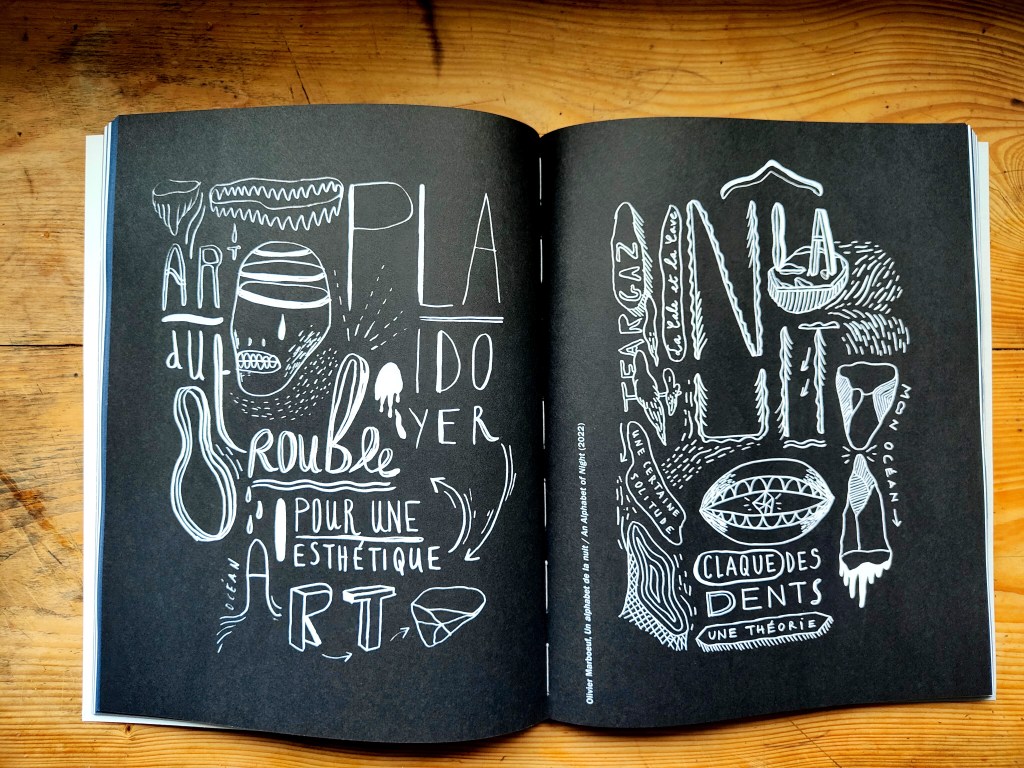 ART
du
ROUBLE
PLA
IDO
YER
POUR UNE
ESTHÉTIQUE
OCÉAN
ART
Olivier Marboeuf, Un alphabet de la nuit / An Alphabet of Night (2022)
TEARGAZ
La Cale et la Cave
LA
N
UIT
UNE CERTAINE
SOLITUDE
MON OCÉAN →
CLAQUE DES
DENTS
UNE THÉORIE